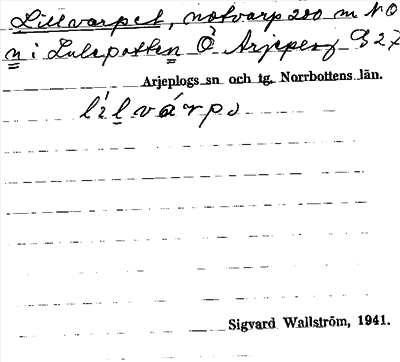 Lillvarpet, notvarp 200 m NO
n i Lulepotten Ö Arjeplog 927
Arjeplogs sn och tg. Norrbottens län.
lílvárpə
Sigvard Wallström, 1941.